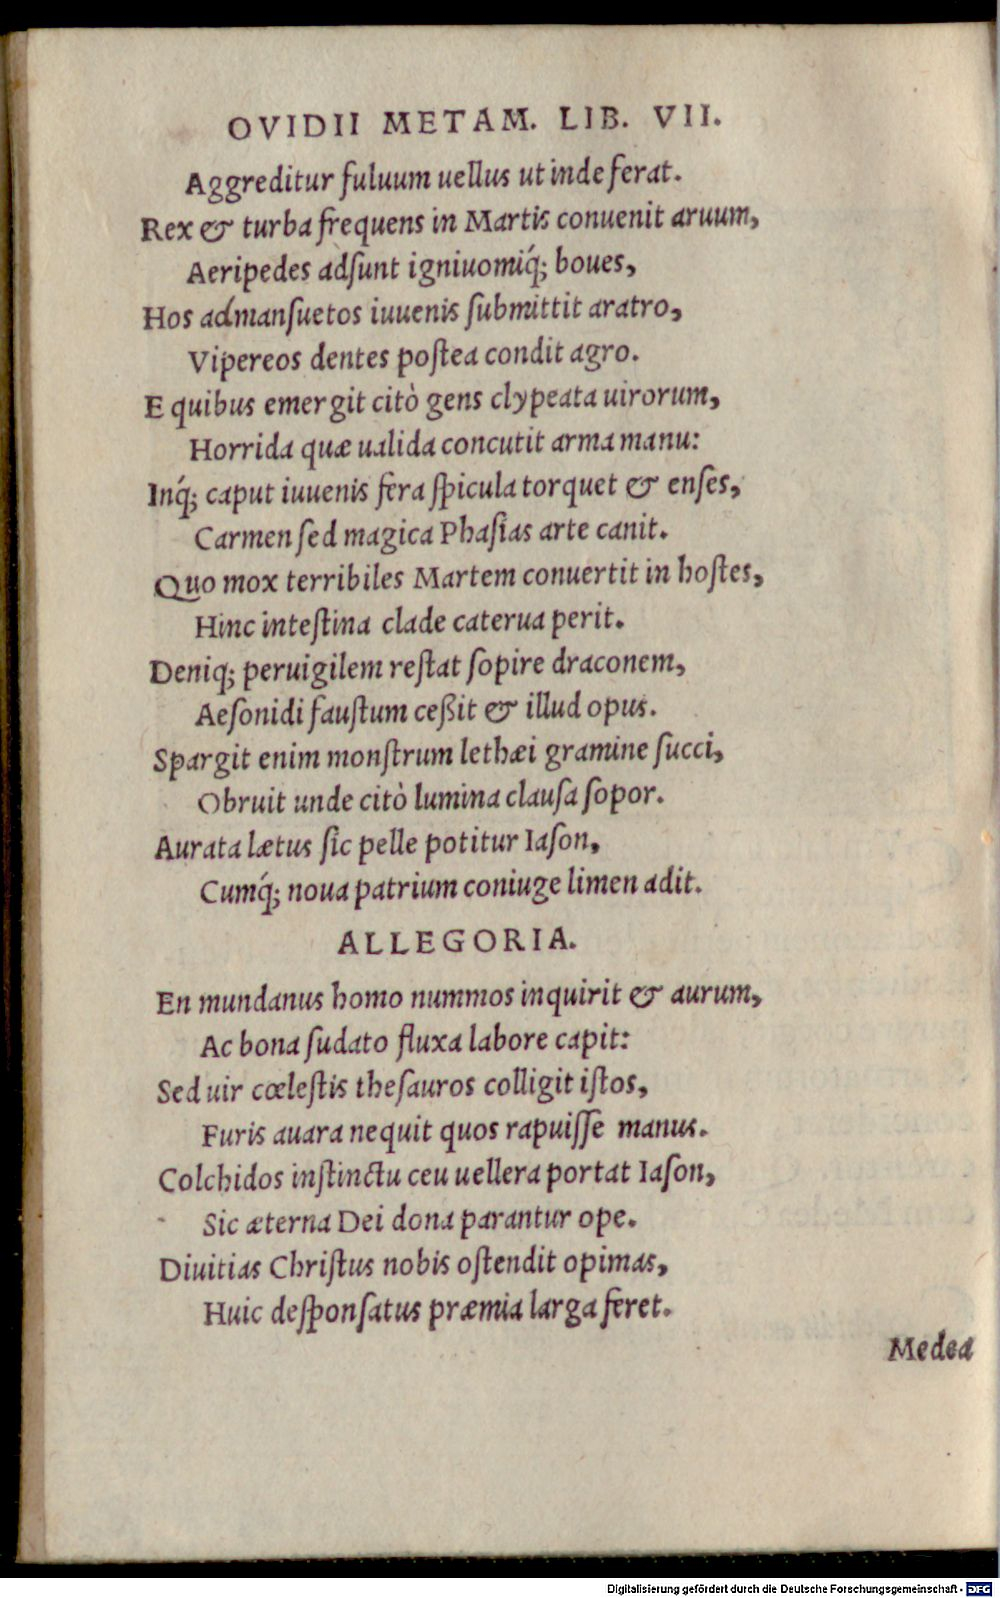 OVIDII METAM. LIB. VII.
Aggreditur fuluum uellus ut inde ferat.
Rex & turba frequens in Martis conuenit aruum,
Aeripedes adsunt igniuomiq́; boues,
Hos admansuetos iuuenis submittit aratro,
Vipereos dentes postea condit agro.
E quibus emergit citò gens clypeata uirorum,
Horrida quæ ualida concutit arma manu:
Inq́; caput iuuenis fera spicula torquet & enses,
Carmen sed magica Phasias arte canit.
Quo mox terribiles Martem conuertit in hostes,
Hinc intestina clade caterua perit.
Deniq; peruigilem restat sopire draconem,
Aesonidi faustum ceßit & illud opus.
Spargit enim monstrum lethæi gramine succi,
Obruit unde citò lumina clausa sopor.
Aurata lætus sic pelle potitur Iason,
Cumq́; noua patrium coniuge limen adit.
ALLEGORIA.
En mundanus homo nummos inquirit & aurum,
Ac bona sudato fluxa labore capit:
Sed uir cœlestis thesauros colligit istos,
Furis auara nequit quos rapuisse manus.
Colchidos instinctu ceu uellera portat Iason,
Sic æterna Dei dona parantur ope.
Diuitias Christus nobis ostendit opimas,
Huic desponsatus præmia larga feret.
Medea
Digitalisierung gefördert durch die Deutsche Forschungsgemeinschaft - DFG